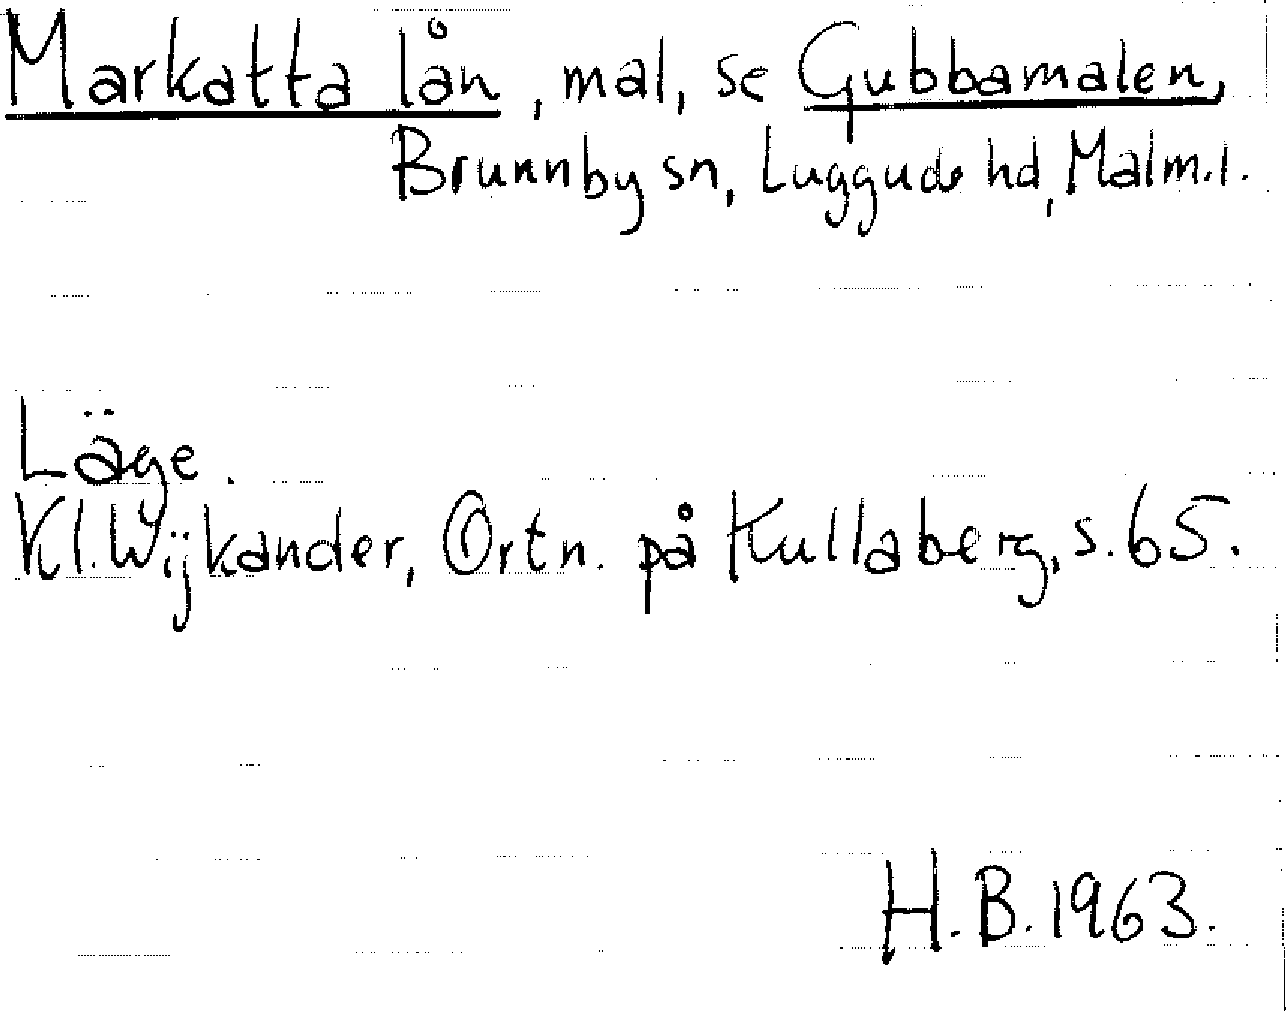 Markatta lån, mal, se Gubbamalen,
Brunnby sn, Luggude hd, Malm.l.
Läge.
Kl. Wijkander, Ortn. på Kullaberg, s. 65.
H.B. 1963.